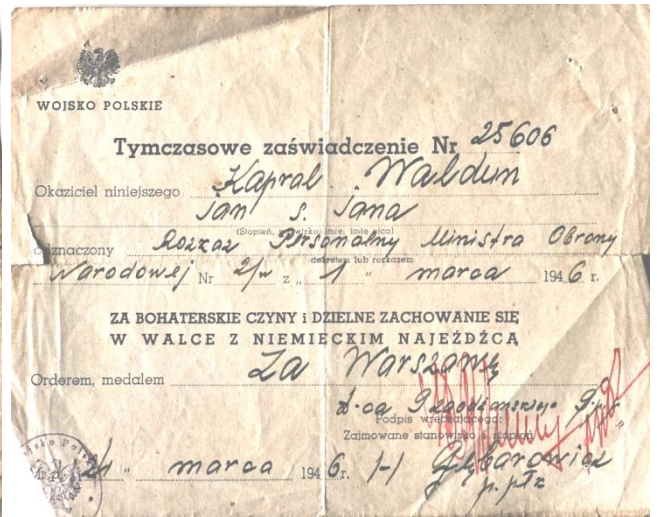 WOJSKO POLSKIE
Tymczasowe zaświadczenie Nr 25606
Okaziciel niniejszego Kapral Waldun
Jan s. Jana
(Stopień, nazwisko, imię, imię ojca)
odznaczony Rozkaz Personalny Ministra Obrony
dekretem lub rozkazem
Narodowej Nr 2/w z „ 1 " marca 1946 r.
ZA BOHATERSKIE CZYNY i DZIELNE ZACHOWANIE SIĘ
W WALCE Z NIEMIECKIM NAJEŹDŹCĄ
Orderem, medalem Za Warszawę
D-ca 9
Podpis wręczającego:
Zajmowane stanowisko i stopień
marca 1946 r. /-/
p.płk